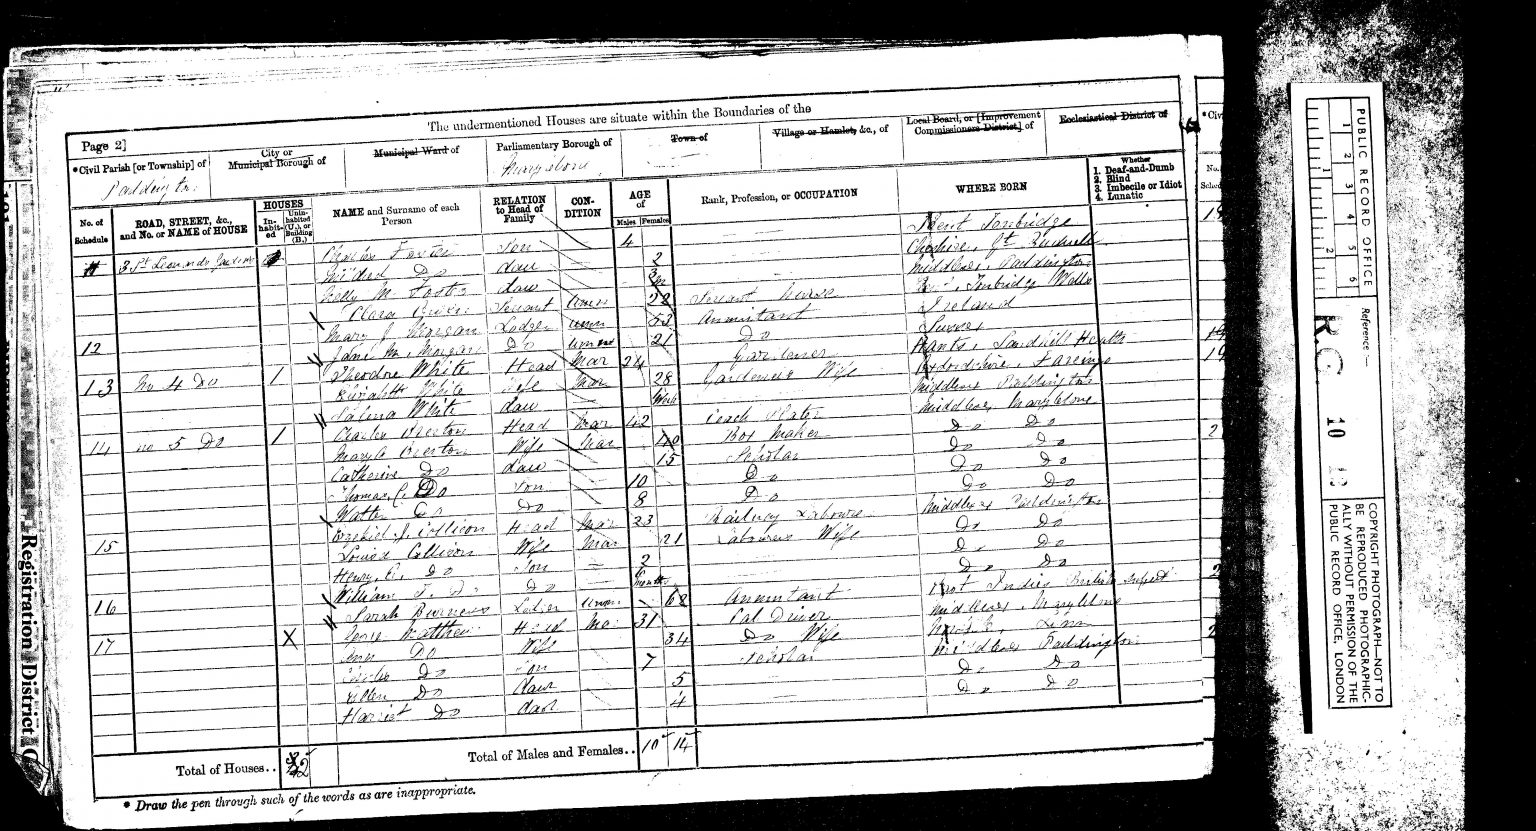 The undermentioned Houses are situate within the Boundaries of the
Page 2]
*Civil Parish [or Township] of
Paddington
City or
Municipal Borough of
Municipal Ward of
Parliamentary Borough of
Marylebone
Town of
Village or Hamlet, &c., of
Local Board, or [Improvement
Commissioners District] of
Ecclesiastical District of
No. of
Schedule
ROAD, STREET, &c.,
and No. or NAME of HOUSE
HOUSES
In-
habit-
ed
Unin-
habited
(U.), or
Building
(B.)
NAME and Surname of each
Person
RELATION
to Head of
Family
CON-
DITION
AGE
of
Males
Females
Rank, Profession, or OCCUPATION
WHERE BORN
Whether
1. Deaf-and-Dumb
2. Blind
3. Imbecile or Idiot
4. Lunatic
3 St Leonards Charles Foster Son 4 Kent Tonbridge
Mildred Do daur 2 Cheshire, Gt
Nelly M. Foster daur 3 m Middlesex, Paddington
Clara Servant unm 22 Servant Nurse Tonbridge Wells
12 Mary J Morgan Lodger unm 52 Annuitant Ireland
Jane M. Morgan Do unm 21 Do Sussex
13 No 4 Do 1 Theodore White Head Mar 24 Gardener Hants, Heath
Elizabeth White Wife Mar 28 Gardeners Wife Oxfordshire,
Salina White daur Middlesex Paddington
14 No 5 Do 1 Charles Head Mar 42 Coach Plater Middlesex, Marylebone
Mary A Wife Mar 40 Box Maker Do Do
Catherine Do daur 15 Scholar Do Do
Thomas C. Do Son 10 Do Do Do
Do Do 8 Do Do Do
15 Ezekiel J. Collison Head Mar 23 Railway Labourer Middlesex Paddington
Louisa Collison Wife Mar 21 Labourers Wife Do Do
Henry C. Do Son 2 Do Do
William J. Do Do 6 months Do Do
16 Sarah Lodger unm 68 Annuitant East Indies British Subject
17 X George Matthew Head Mar 31 Driver Middlesex, Marylebone
Do Wife 34 Do Wife Norfolk Lynn
Charles Do Son 7 Scholar Middlesex Paddington
Ellen Do daur 5 Do Do
Harriet Do daur 4 Do Do
Total of Houses..
Total of Males and Females.. 10 14
* Draw the pen through such of the words as are inappropriate.
Registration District
PUBLIC RECORD OFFICE
1 2 3 4 5 6
1 2
Reference:—
R.G. 10
COPYRIGHT PHOTOGRAPH—NOT TO
BE REPRODUCED PHOTOGRAPHIC-
ALLY WITHOUT PERMISSION OF THE
PUBLIC RECORD OFFICE, LONDON